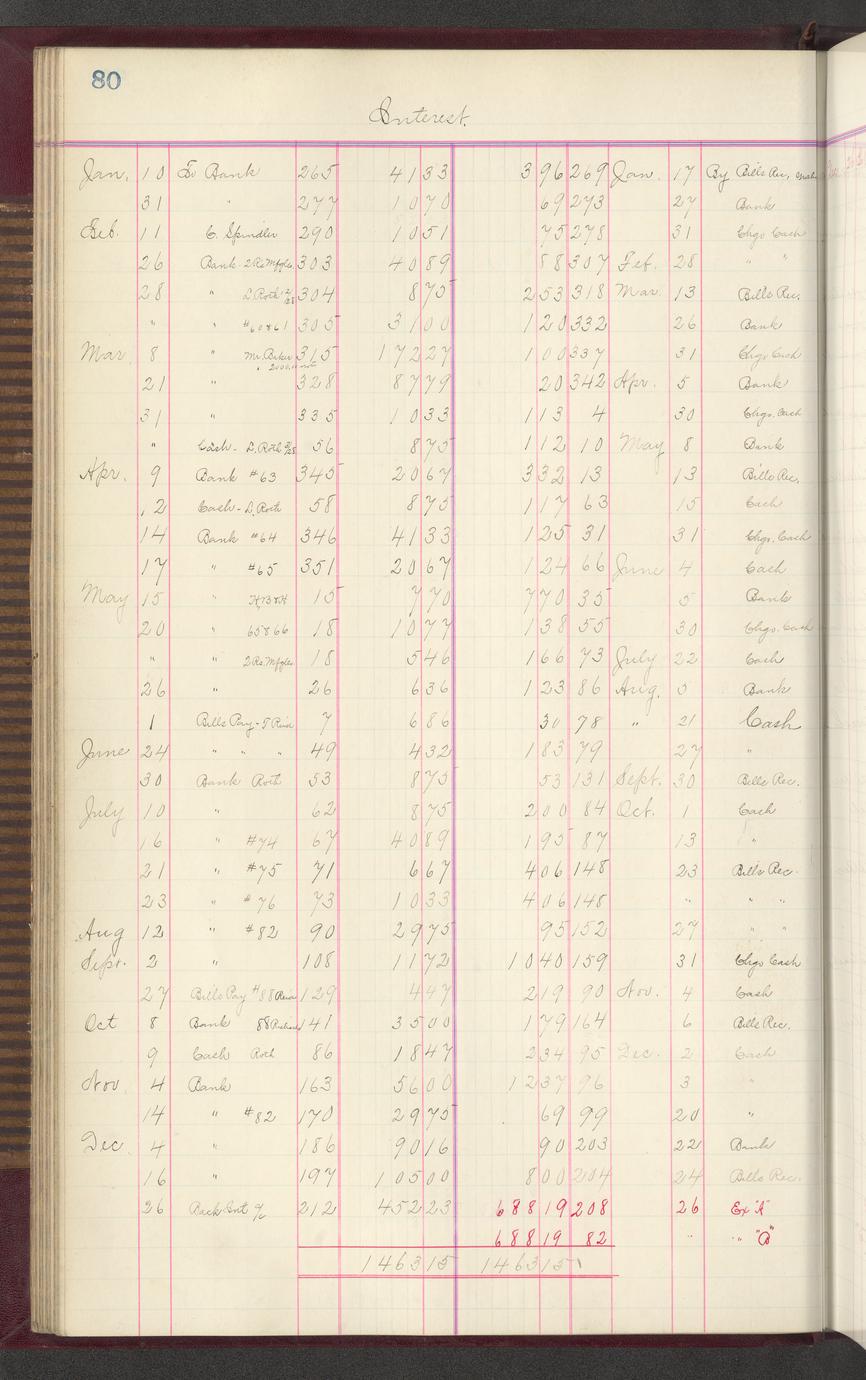 80
Interest.
Jan. 10 To Bank 265 41 33 3 96 269 Jan. 17 By Bills Rec,
31 " 277 10 70 69 273 27 Bank
Feb. 11 C. Spindler 290 10 51 75 278 31 Chgo Cash
26 Bank - 2 Rs Mfgles 303 40 89 88 307 Feb. 28 " "
28 " L Roth 2/28 304 8 75 2 53 318 Mar. 13 Bills Rec.
" " #60&61 305 31 00 1 20 332 26 Bank
Mar 8 " Mr. Baker 315 172 27 1 00 337 31 Chgo Cash
21 " 328 87 79 20 342 Apr. 5 Bank
31 " 335 10 33 1 13 4 30 Chgo. Cash
" Cash - L. Roth 56 8 75 1 12 10 May 8 Bank
Apr. 9 Bank #63 345 20 67 3 32 13 13 Bills Rec.
12 Cash - L. Roth 58 8 75 1 17 63 15 Cash
14 Bank #64 346 41 33 1 25 31 31 Chgo. Cash
17 " #65 351 20 67 1 24 66 June 4 Cash
May 15 " 15 7 70 7 70 35 5 Bank
20 " 65&66 18 10 77 1 38 55 30 Chgo. Cash
" " 2 Rs. Mfgles 18 5 46 1 66 73 July 22 Cash
26 " 26 6 36 1 23 86 Aug. 5 Bank
1 Bills Pay - 7 6 86 30 78 " 21 Cash
June 24 " " " 49 4 32 1 83 79 27 "
30 Bank Roth 53 8 75 53 131 Sept. 30 Bills Rec.
July 10 " 62 8 75 2 00 84 Oct. 1 Cash
16 " #74 67 40 89 1 95 87 13 "
21 " #75 71 6 67 4 06 148 23 Bills Rec.
23 " #76 73 10 33 4 06 148 " " "
Aug 12 " #82 90 29 75 95 152 27 " "
Sept. 2 " 108 11 72 10 40 159 31 Chgo Cash
27 Bills Pay #88 129 4 47 2 19 90 Nov. 4 Cash
Oct 8 Bank 88 141 35 00 1 79 164 6 Bills Rec.
9 Cash Roth 86 18 47 2 34 95 Dec. 2 Cash
Nov. 4 Bank 163 56 00 12 37 96 3 "
14 " #82 170 29 75 69 99 20 "
Dec 4 " 186 90 16 90 203 22 Bank
16 " 197 105 00 8 00 204 24 Bills Rec.
26 Back Int a/c 212 452 23 688 19 208 26 Ex "A"
688 19 82 " " "B"
1463 15 1463 15